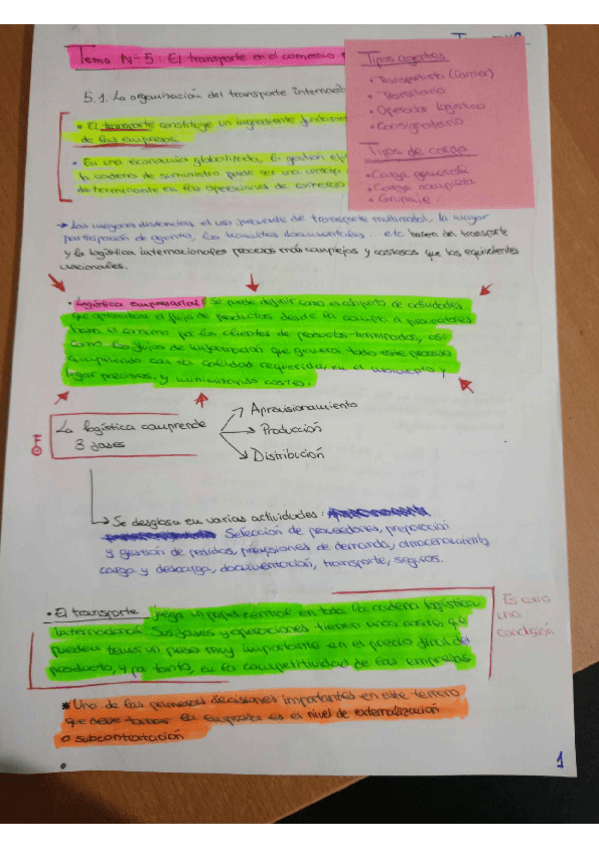 Tema Nº5: El transporte en el comercio
5.1. La organización del transporte Internac
• El transporte constituye un ingrediente fundamen
de las empresas.
• En una economía globalizada, la gestión
la cadena de suministro puede ser una ventaja
determinante en las operaciones de comercio
Tipos agentes
• Transportista (Carrier)
• Transitario
• Operador logístico
• Consignatario
Tipos de carga
• Carga general
• Carga completa
• Grupaje
→ Las mayores distancias, el uso frecuente de transporte multimodal, la mayor
participación de agentes, los trámites documentales... etc hacen del transporte
y la logística internacionales procesos más complejos y costosos que los equivalentes
nacionales.
• Logística empresarial: Se puede definir como el conjunto de actividades
que optimizan el flujo de productos desde la compra a proveedores
hasta el consumo por los clientes de productos terminados, así
como los flujos de información que genera todo este proceso
cumpliendo con la calidad requerida, en el momento y
lugar precisos, y minimizando costes.
La logística comprende
3 fases
→ Aprovisionamiento
→ Producción
→ Distribución
→ Se desglosa en varias actividades:
Selección de proveedores, preparación
y gestión de pedidos, previsiones de demanda, almacenamiento,
carga y descarga, documentación, transporte, seguros.
• El transporte juega un papel central en toda la cadena logística
internacional. Sus fases y operaciones tienen unos costes que
pueden tener un peso muy importante en el precio final del
producto, y por tanto, en la competitividad de las empresas
Es como
una
conclusión
* Una de las primeras decisiones importantes en este terreno
que debe tomar la empresa es el nivel de externalización
o subcontratación
1